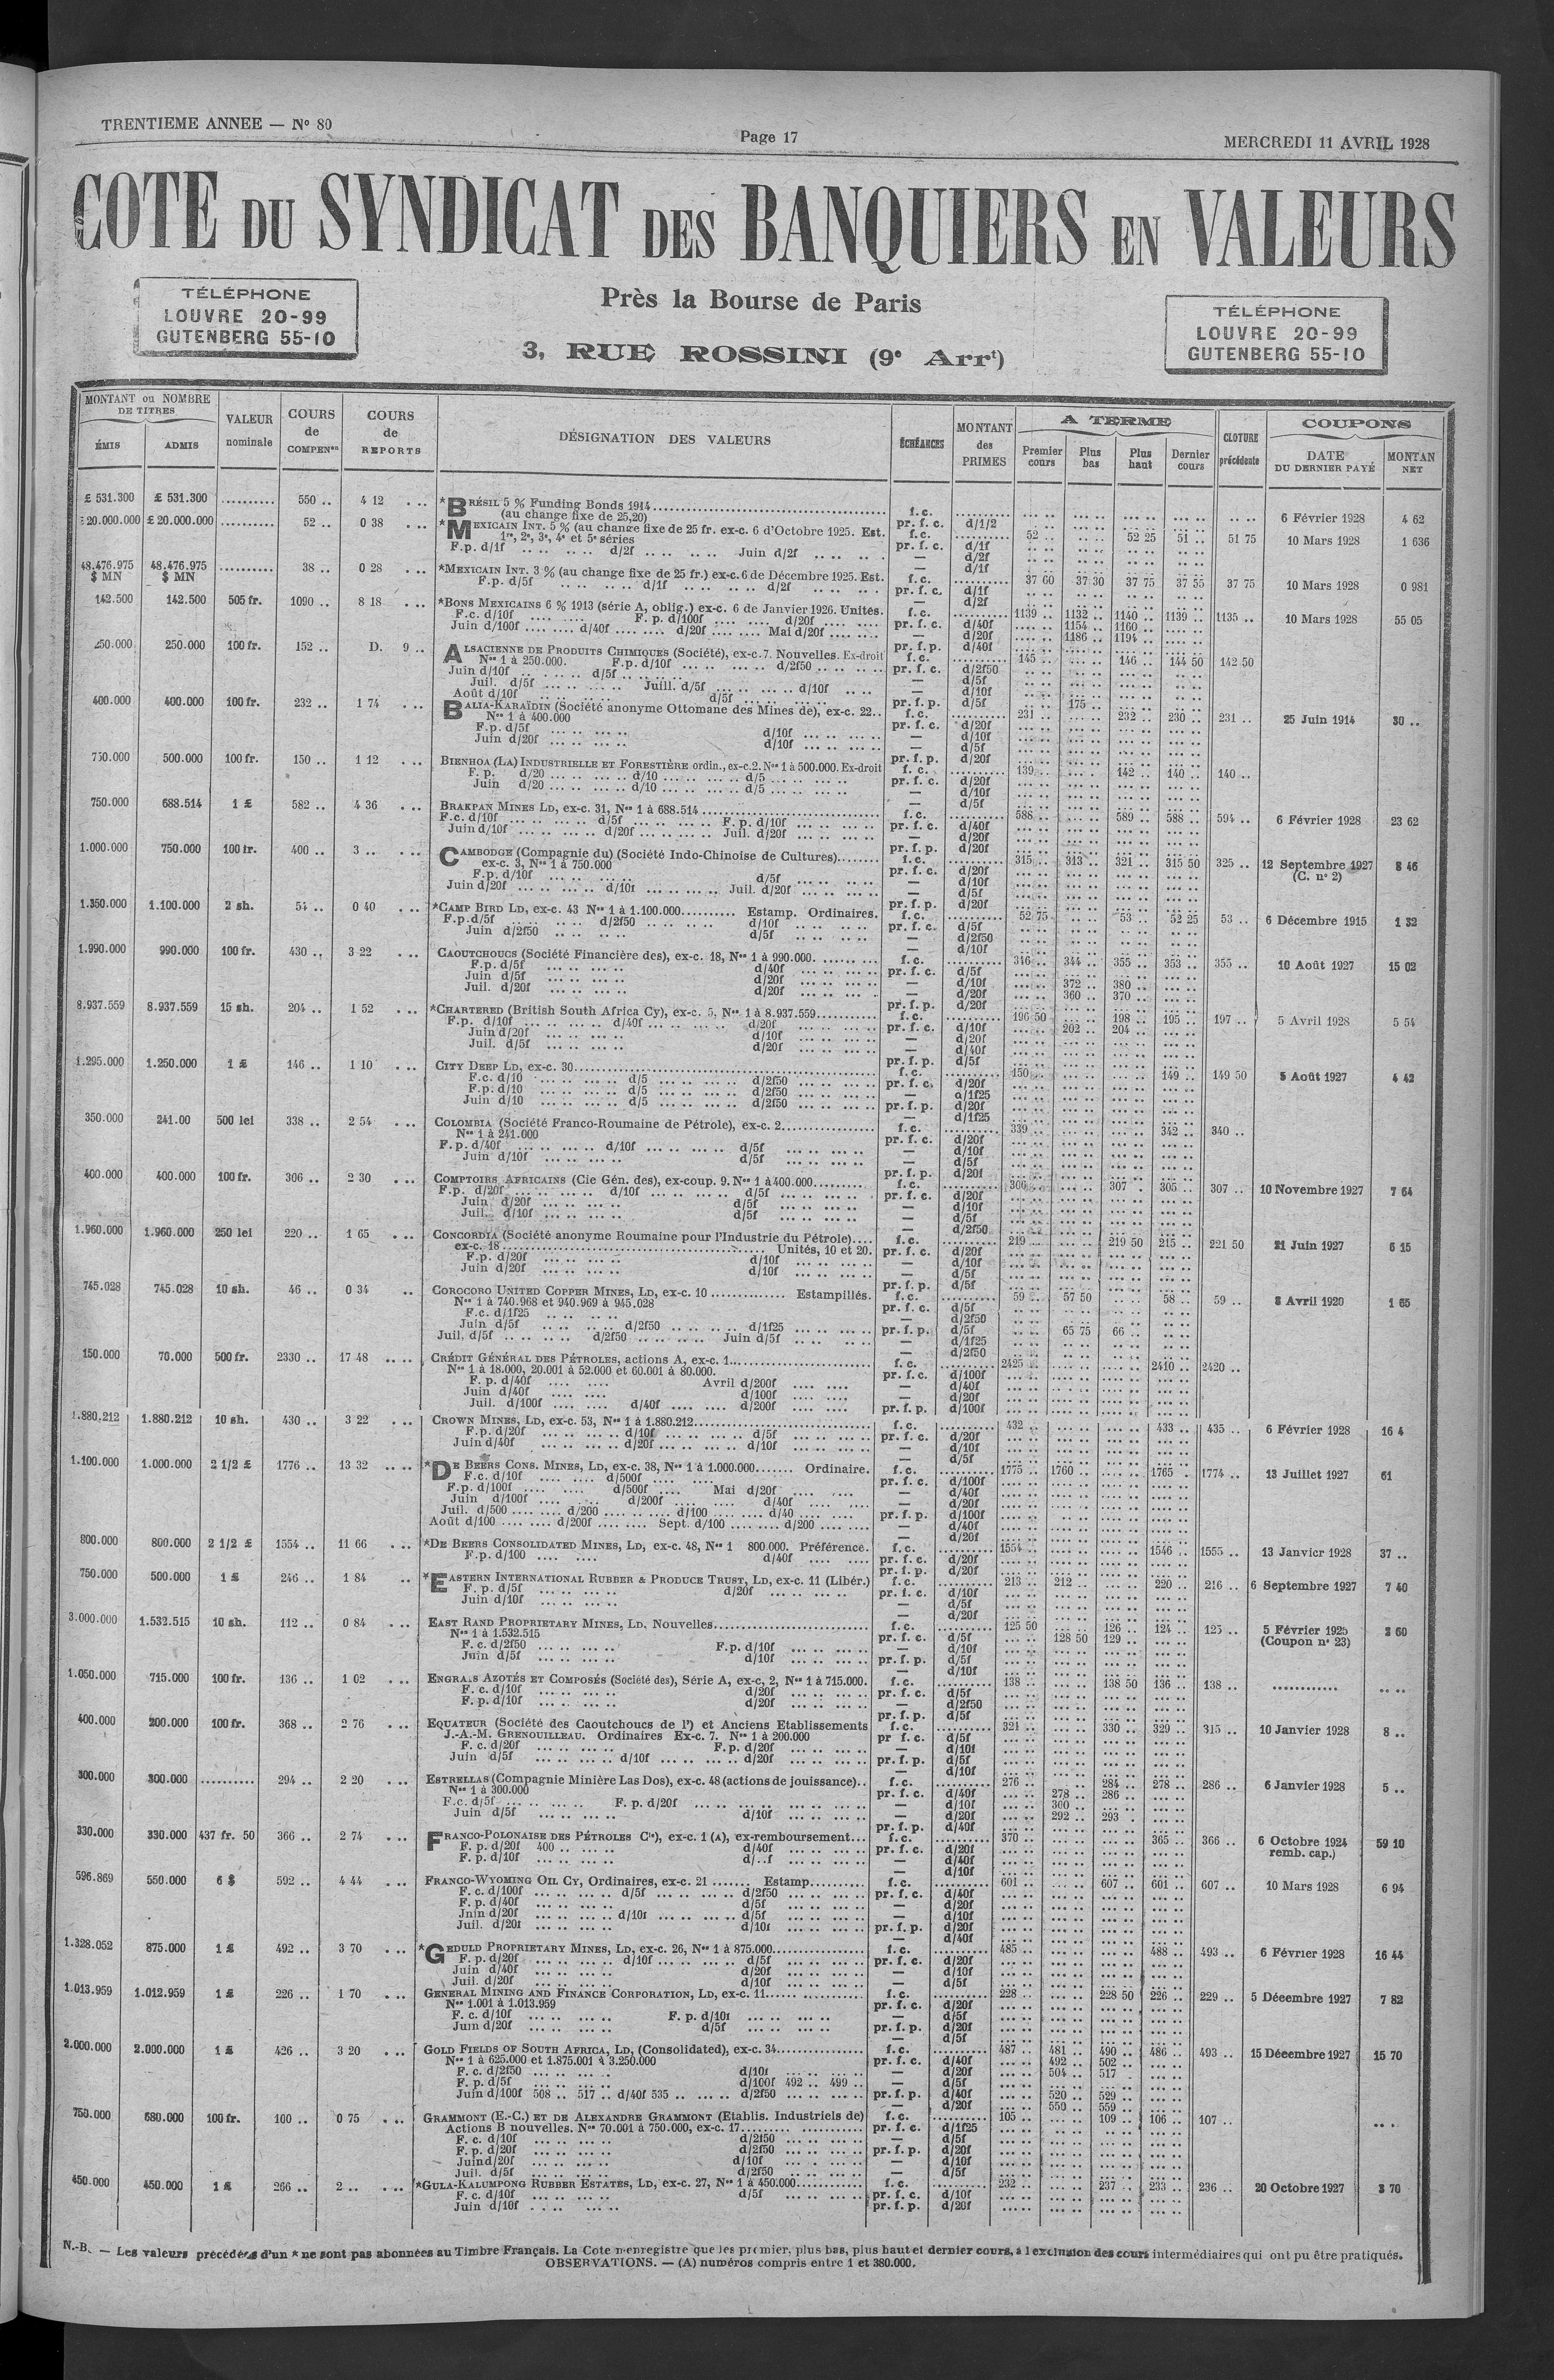 TRENTIEME ANNEE — N° 80
Page 17
MERCREDI 11 AVRIL 1928
COTE DU SYNDICAT DES BANQUIERS EN VALEURS
TÉLÉPHONE
LOUVRE 20-99
GUTENBERG 55-10
Près la Bourse de Paris
3, RUE ROSSINI (9e Arrt)
TÉLÉPHONE
LOUVRE 20-99
GUTENBERG 55-10
MONTANT ou NOMBRE DE TITRES
ÉMIS
ADMIS
VALEUR nominale
COURS de COMPENon
COURS de REPORTS
DÉSIGNATION DES VALEURS
ÉCHÉANCES
MONTANT des PRIMES
A TERME
Premier cours
Plus bas
Plus haut
Dernier cours
CLOTURE précédente
COUPONS
DATE DU DERNIER PAYÉ
MONTAN NET
£ 531.300 £ 531.300 .......... 550 .. 4 12 *BRÉSIL 5 % Funding Bonds 1914 f.c. 6 Février 1928 4 62
(au change fixe de 25,20) pr. f. c. d/1/2
20.000.000 £ 20.000.000 .......... 52 .. 0 38 *MEXICAIN INT. 5 % (au change fixe de 25 fr. ex-c. 6 d'Octobre 1925. Est. f.c. 52 .. 52 25 51 .. 51 75 10 Mars 1928 1 636
1re, 2e, 3e, 4e et 5e séries pr. f. c. d/1f
F.p. d/1f d/2f Juin d/2f — d/2f
48.476.975 $ MN 48.476.975 $ MN .......... 38 .. 0 28 *MEXICAIN INT. 3 % (au change fixe de 25 fr.) ex-c. 6 de Décembre 1925. Est. f.c. 37 60 37 30 37 75 37 55 37 75 10 Mars 1928 0 981
F.p. d/5f d/1f d/2f pr. f. c. d/1f
142.500 142.500 505 fr. 1090 .. 8 18 *BONS MEXICAINS 6 % 1913 (série A, oblig.) ex-c. 6 de Janvier 1926. Unités. f.c. 1139 .. 1132 .. 1140 .. 1139 .. 1135 .. 10 Mars 1928 55 05
F.c. d/10f F. p. d/100f d/20f pr. f. c. d/40f 1154 .. 1160 ..
Juin d/100f d/40f d/20f Mai d/20f — d/20f 1186 .. 1194 ..
250.000 250.000 100 fr. 152 .. D. 9 .. ALSACIENNE DE PRODUITS CHIMIQUES (Société), ex-c.7. Nouvelles. Ex-droit f.c. 145 .. 146 .. 144 50 142 50
Nos 1 à 250.000. F.p. d/10f d/2f50 pr. f. c. d/2f50
Juin d/10f d/5f — d/5f
Juil. d/5f Juill. d/5f d/10f — d/10f
Août d/10f d/5f pr. f. p. d/5f 175 ..
400.000 400.000 100 fr. 232 .. 1 74 BALIA-KARAÏDIN (Société anonyme Ottomane des Mines de), ex-c. 22.. f.c. 231 .. 232 .. 230 .. 231 .. 25 Juin 1914 30 ..
Nos 1 à 400.000 pr. f. c. d/20f
F.p. d/5f d/10f — d/10f
Juin d/20f d/10f — d/5f
750.000 500.000 100 fr. 150 .. 1 12 BIENHOA (LA) INDUSTRIELLE ET FORESTIÈRE ordin., ex-c.2. Nos 1 à 500.000. Ex-droit f. c. 139 .. 142 .. 140 .. 140 ..
F. p. d/20 d/10 d/5 pr. f. c. d/20f
Juin d/20 d/10 d/5 — d/10f
750.000 688.514 1 £ 582 .. 4 36 BRAKPAN MINES LD, ex-c. 31, Nos 1 à 688.514 f.c. 588 .. 589 .. 588 .. 594 .. 6 Février 1928 23 62
F.c. d/10f d/5f F. p. d/10f pr. f. c. d/40f
Juin d/10f d/20f Juil. d/20f — d/20f
1.000.000 750.000 100 fr. 400 .. 3 .. CAMBODGE (Compagnie du) (Société Indo-Chinoise de Cultures) f.c. 315 .. 313 .. 321 .. 315 50 325 .. 12 Septembre 1927 8 46
ex-c. 3, Nos 1 à 750.000 pr. f. c. d/20f (C. n° 2)
F.p. d/10f d/5f — d/10f
Juin d/20f d/10f Juil. d/20f — d/5f
1.350.000 1.100.000 2 sh. 54 .. 0 40 *CAMP BIRD LD, ex-c. 43 Nos 1 à 1.100.000 Estamp. Ordinaires. f.c. 52 75 53 .. 52 25 53 .. 6 Décembre 1915 1 32
F.p.d/5f d/2f50 d/10f pr. f. c. d/5f
Juin d/2f50 d/5f — d/2f50
1.990.000 990.000 100 fr. 430 .. 3 22 CAOUTCHOUCS (Société Financière des), ex-c. 18, Nos 1 à 990.000. f.c. 346 .. 344 .. 355 .. 353 .. 355 .. 10 Août 1927 15 02
F.p. d/5f d/40f pr. f. c. d/5f
Juin d/5f d/20f — d/10f 372 .. 380 ..
Juil. d/20f d/20f — d/20f 360 .. 370 ..
8.937.559 8.937.559 15 sh. 204 .. 1 52 *CHARTERED (British South Africa Cy), ex-c. 5, Nos 1 à 8.937.559 f.c. 196 50 198 .. 195 .. 197 .. 5 Avril 1928 5 54
F.p. d/10f d/40f d/20f pr. f. c. d/10f 202 .. 204 ..
Juin d/20f d/10f — d/20f
Juil. d/5f d/20f — d/40f
1.295.000 1.250.000 1 £ 146 .. 1 10 CITY DEEP LD, ex-c. 30 f.c. 150 .. 149 .. 149 50 5 Août 1927 4 42
F.c. d/10 d/5 d/2f50 pr. f. c. d/20f
F.p. d/10 d/5 d/2f50 — d/1f25
Juin d/10 d/5 d/2f50 pr. f. p. d/20f
350.000 241.00 500 lei 338 .. 2 54 COLOMBIA (Société Franco-Roumaine de Pétrole), ex-c. 2 f. c. 339 .. 342 .. 340 ..
Nos 1 à 241.000 pr. f. c. d/20f
F. p. d/40f d/10f d/5f — d/10f
Juin d/10f d/5f — d/5f
400.000 400.000 100 fr. 306 .. 2 30 COMPTOIRS AFRICAINS (Cie Gén. des), ex-coup. 9. Nos 1 à 400.000 f.c. 306 .. 307 .. 305 .. 307 .. 10 Novembre 1927 7 64
F.p. d/20f d/10f d/5f pr. f. c. d/20f
Juin d/20f d/5f — d/10f
Juil. d/10f d/5f — d/5f
1.960.000 1.960.000 250 lei 220 .. 1 65 CONCORDIA (Société anonyme Roumaine pour l'Industrie du Pétrole) f.c. 219 .. 219 50 215 .. 221 50 21 Juin 1927 6 15
ex-c. 18 Unités, 10 et 20. pr. f. c. d/20f
F.p. d/20f d/10f — d/10f
Juin d/20f d/10f — d/5f
745.028 745.028 10 sh. 46 .. 0 34 COROCORO UNITED COPPER MINES, LD, ex-c. 10 Estampillés. f.c. 59 .. 57 50 58 .. 59 .. 8 Avril 1920 1 65
Nos 1 à 740.968 et 940.969 à 945.028 pr. f. c. d/5f
F.c. d/1f25 — d/2f50
Juin d/5f d/2f50 d/1f25 pr. f. p. d/5f 65 75 66 ..
Juil. d/5f d/2f50 Juin d/5f — d/1f25
150.000 70.000 500 fr. 2330 .. 17 48 CRÉDIT GÉNÉRAL DES PÉTROLES, actions A, ex-c. 1 f. c. 2425 .. 2410 .. 2420 ..
Nos 1 à 18.000, 20.001 à 52.000 et 60.001 à 80.000. pr. f. c. d/100f
F. p. d/40f Avril d/200f — d/40f
Juin d/40f d/100f — d/20f
Juil. d/100f d/40f d/200f pr. f. p. d/100f
1.880.212 1.880.212 10 sh. 430 .. 3 22 CROWN MINES, LD, ex-c. 53, Nos 1 à 1.880.212 f. c. 432 .. 433 .. 435 .. 6 Février 1928 16 4
F.p. d/20f d/10f d/5f pr. f. c. d/20f
Juin d/40f d/20f d/10f — d/10f
1.100.000 1.000.000 2 1/2 £ 1776 .. 13 32 *DE BEERS CONS. MINES, LD, ex-c. 38, Nos 1 à 1.000.000 Ordinaire. f.c. 1775 .. 1760 .. 1765 .. 1774 .. 13 Juillet 1927 61
F.c. d/10f d/500f pr. f. c. d/100f
F.p. d/100f d/500f Mai d/20f — d/40f
Juin d/100f d/200f d/40f — d/20f
Juil. d/500 d/200 d/100 d/40 pr. f. p. d/100f
Août d/100 d/200f Sept. d/100 d/200 — d/40f
800.000 800.000 2 1/2 £ 1554 .. 11 66 *DE BEERS CONSOLIDATED MINES, LD, ex-c. 48, Nos 1 800.000. Préférence. f.c. 1554 .. 1546 .. 1555 .. 13 Janvier 1928 37 ..
F.p. d/100 d/40f pr. f. c. d/20f
750.000 500.000 1 £ 246 .. 1 84 *EASTERN INTERNATIONAL RUBBER & PRODUCE TRUST, LD, ex-c. 11 (Libér.) f.c. 213 .. 212 .. 220 .. 216 .. 6 Septembre 1927 7 40
F. p. d/5f d/20f pr. f. c. d/10f
Juin d/10f — d/5f
3.000.000 1.532.515 10 sh. 112 .. 0 84 EAST RAND PROPRIETARY MINES, LD, Nouvelles f. c. 125 50 126 .. 124 .. 125 .. 5 Février 1925 3 60
Nos 1 à 1.532.515 pr. f. c. d/5f 128 50 129 .. (Coupon n° 23)
F. c. d/2f50 F.p. d/10f — d/10f
Juin d/5f d/10f pr. f. p. d/5f
1.050.000 715.000 100 fr. 136 .. 1 02 ENGRAIS AZOTÉS ET COMPOSÉS (Société des), Série A, ex-c, 2, Nos 1 à 715.000. f. c. 138 .. 138 50 136 .. 138 ..
F. c. d/10f d/20f pr. f. c. d/5f
F. p. d/10f d/20f — d/2f50
400.000 200.000 100 fr. 368 .. 2 76 EQUATEUR (Société des Caoutchoucs de l') et Anciens Etablissements f. c. 321 .. 330 .. 329 .. 315 .. 10 Janvier 1928 8 ..
J.-A.-M. GRENOUILLEAU. Ordinaires Ex-c. 7. Nos 1 à 200.000 pr f. c. d/5f
F. c. d/20f F. p. d/20f — d/10f
Juin d/5f d/10f d/20f pr. f. p. d/5f
300.000 300.000 .......... 294 .. 2 20 ESTRELLAS (Compagnie Minière Las Dos), ex-c. 48 (actions de jouissance).. f. c. 276 .. 284 .. 278 .. 286 .. 6 Janvier 1928 5 ..
Nos 1 à 300.000 pr. f. c. d/40f 278 .. 286 ..
F.c. d/5f F. p. d/20f — d/10f 300 ..
Juin d/5f d/10f — d/20f 292 .. 293 ..
330.000 330.000 437 fr. 50 366 .. 2 74 FRANCO-POLONAISE DES PÉTROLES Cie), ex-c. 1 (A), ex-remboursement... f. c. 370 .. 365 .. 366 .. 6 Octobre 1924 59 10
F. p. d/20f 400 .. d/40f pr. f. c. d/20f remb. cap.)
F. p. d/10f d/..f — d/40f
596.869 550.000 6 $ 592 .. 4 44 FRANCO-WYOMING OIL CY, Ordinaires, ex-c. 21 Estamp. f. c. 601 .. 607 .. 601 .. 607 .. 10 Mars 1928 6 94
F. c. d/100f d/5f d/2f50 pr. f. c. d/40f
F. p. d/40f d/5f — d/20f
Juin d/20f d/10f d/5f — d/10f
Juil. d/20f d/10f pr. f. p. d/20f
1.328.052 875.000 1 £ 492 .. 3 70 *GEDULD PROPRIETARY MINES, LD, ex-c. 26, Nos 1 à 875.000 f. c. 485 .. 488 .. 493 .. 6 Février 1928 16 44
F. p. d/20f d/10f d/5f pr. f. c. d/20f
Juin d/40f d/20f — d/10f
Juil. d/20f d/10f — d/5f
1.013.959 1.012.959 1 £ 226 .. 1 70 GENERAL MINING AND FINANCE CORPORATION, LD, ex-c. 11 f. c. 228 .. 228 50 226 .. 229 .. 5 Décembre 1927 7 82
Nos 1.001 à 1.013.959 pr. f. c. d/20f
F. c. d/10f F. p. d/10f — d/5f
Juin d/20f d/5f pr. f. p. d/20f
2.000.000 2.000.000 1 £ 426 .. 3 20 GOLD FIELDS OF SOUTH AFRICA, LD, (Consolidated), ex-c. 34 f. c. 487 .. 481 .. 490 .. 486 .. 493 .. 15 Décembre 1927 15 70
Nos 1 à 625.000 et 1.875.001 à 3.250.000 pr. f. c. d/40f 492 .. 502 ..
F. c. d/2f50 d/10f — d/20f 504 .. 517 ..
F. p. d/5f d/100f 492 .. 499 .. — d/5f
Juin d/100f 508 .. 517 .. d/40f 535 .. d/2f50 pr. f. p. d/40f 520 .. 529 ..
— d/20f 550 .. 559 ..
750.000 680.000 100 fr. 100 .. 0 75 GRAMMONT (E.-C.) ET DE ALEXANDRE GRAMMONT (Etablis. Industriels de) f. c. 105 .. 109 .. 106 .. 107 ..
Actions B nouvelles. Nos 70.001 à 750.000, ex-c. 17 pr. f. c. d/1f25
F. c. d/10f d/2f50 — d/5f
F. p. d/20f d/2f50 pr. f. p. d/20f
Juin d/20f d/10f — d/10f
Juil. d/5f d/2f50 — d/5f
450.000 450.000 1 £ 266 .. 2 .. *GULA-KALUMPONG RUBBER ESTATES, LD, ex-c. 27, Nos 1 à 450.000 f. c. 232 .. 237 .. 233 .. 236 .. 20 Octobre 1927 3 70
F. c. d/10f d/5f pr. f. c. d/10f
Juin d/10f pr. f. p. d/20f
N.-B. — Les valeurs précédées d'un * ne sont pas abonnées au Timbre Français. La Cote n'enregistre que les premier, plus bas, plus haut et dernier cours, à l'exclusion des cours intermédiaires qui ont pu être pratiqués.
OBSERVATIONS. — (A) numéros compris entre 1 et 380.000.